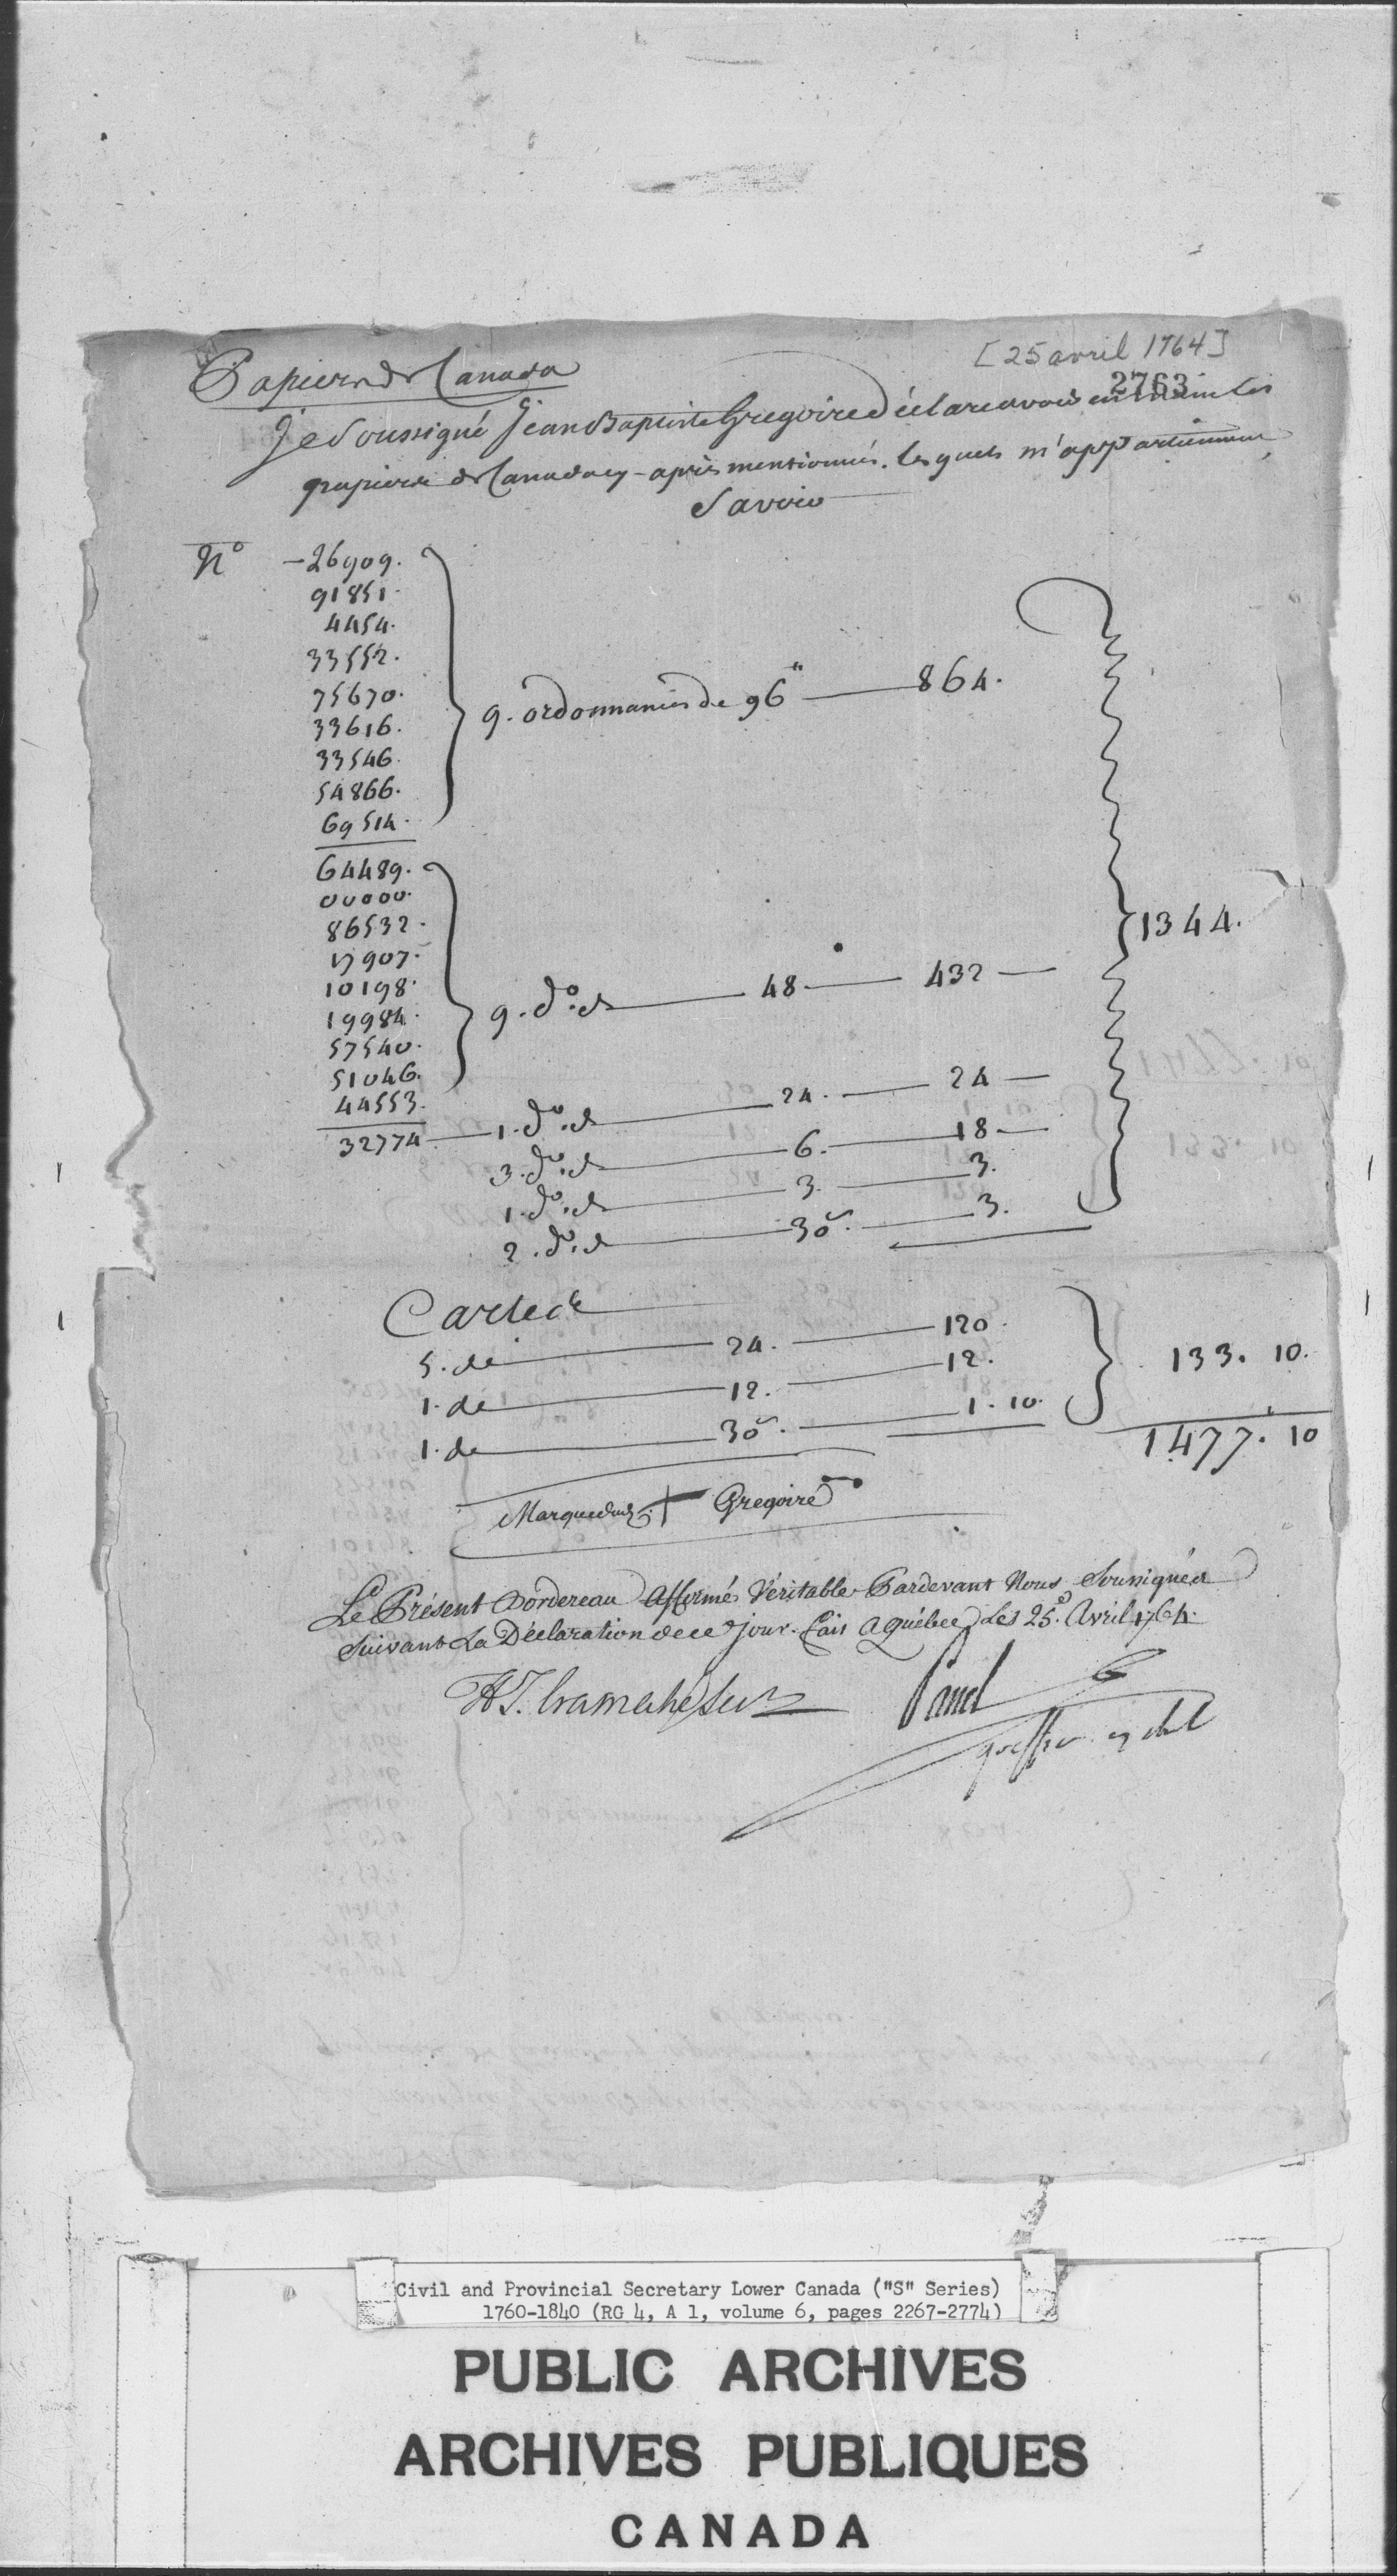 [25 avril 1764]
2763
Papiers de Canada
Je Soussigné Jean Baptiste Gregoire déclare avoir en main les
papiers de Canada cy-après mentionnés. lesquels m'appartiennent
Savoir
N° - 26909.
91851.
4454.
33552.
75670.
33616.
33546.
54866.
69514.
9. ordonnances de 96# 864.
64489.
00000.
86532.
17907.
10198.
19984.
57540.
51046.
44553.
9. do. de 48 432
32774 1. do. de 24. 24
3. do. de 6. 18
1. do. de 3. 3.
2. do. de 30s. 3.
1344.
Carte de
5. de 24. 120.
1. de 12. 12.
1. de 30s. 1. 10.
133. 10.
1477. 10
Marque dud. + Gregoire
Le Présent Bordereau Affirmé Véritable Pardevant Nous Soussignés
Suivant La Déclaration de ce jour. fait a Québec Les 25e. Avril 1764.
H T. Cramahé Secr
Panet
greffier
Civil and Provincial Secretary Lower Canada ("S" Series)
1760-1840 (RG 4, A 1, volume 6, pages 2267-2774)
PUBLIC ARCHIVES
ARCHIVES PUBLIQUES
CANADA